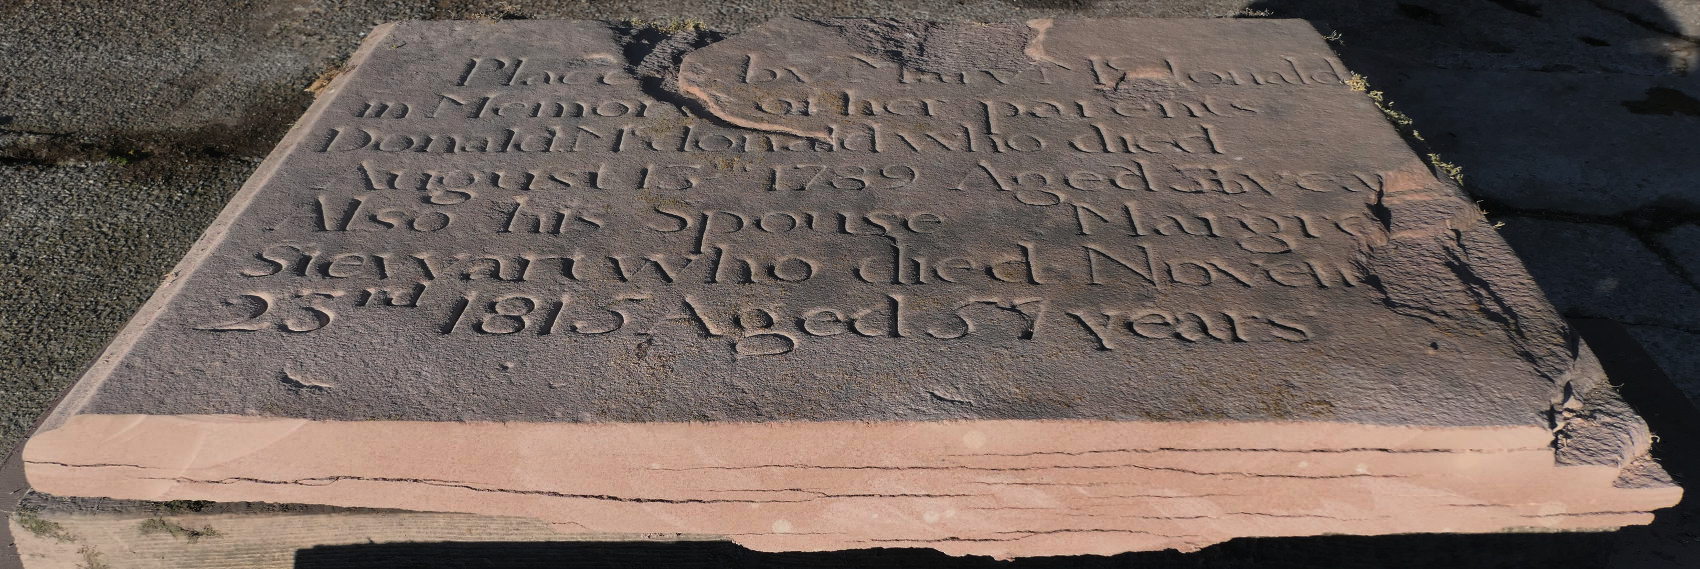 Place by Mary Mcdonald
in Memory of her parents
Donald Mcdonald who died
August 13th 1789 Aged
Also his Spouse Margre
Stewart who died Novem
23rd 1815 Aged 57 years